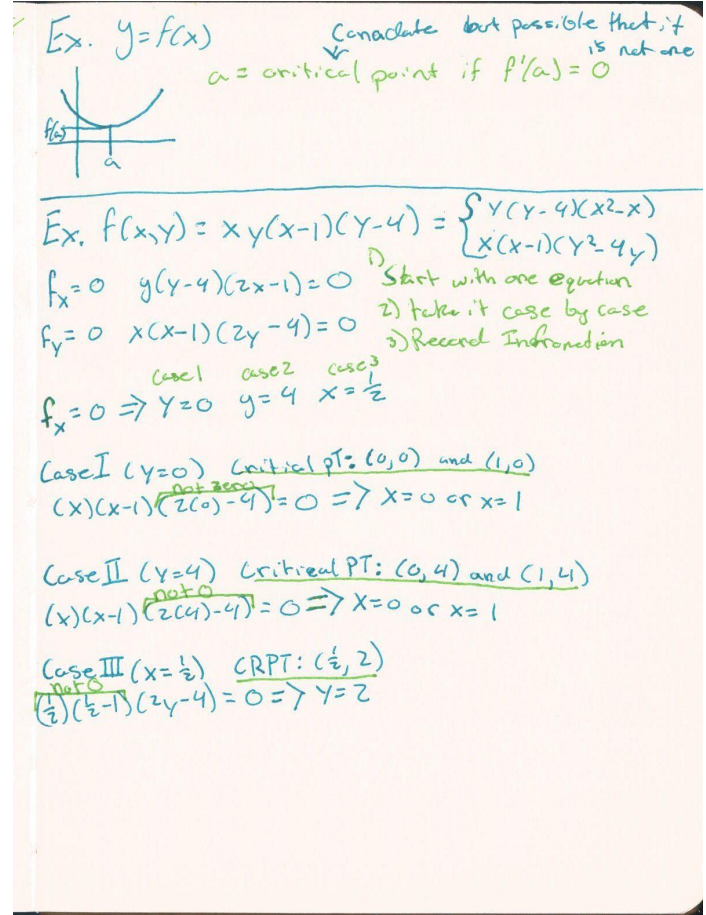 Ex. y=f(x)
Canadate but possible that it
is not one
a = critical point if f'(a) = 0
f(a)
a
Ex. f(x,y) = xy(x-1)(y-4) = { y(y-4)(x²-x)
x(x-1)(y²-4y)
fx = 0 y(y-4)(2x-1) = 0
1) Start with one equation
fy = 0 x(x-1)(2y-4) = 0
2) take it case by case
3) Record Infromation
case1 case2 case3
fx = 0 ⇒ y=0 y=4 x=1/2
Case I (y=0) Critical pT: (0,0) and (1,0)
not zero
(x)(x-1)(2(0)-4) = 0 ⇒ x=0 or x=1
Case II (y=4) Critical PT: (0,4) and (1,4)
not 0
(x)(x-1)(2(4)-4) = 0 ⇒ x=0 or x=1
Case III (x=1/2) CRPT: (1/2, 2)
not 0
(1/2)(1/2-1)(2y-4) = 0 ⇒ y=2